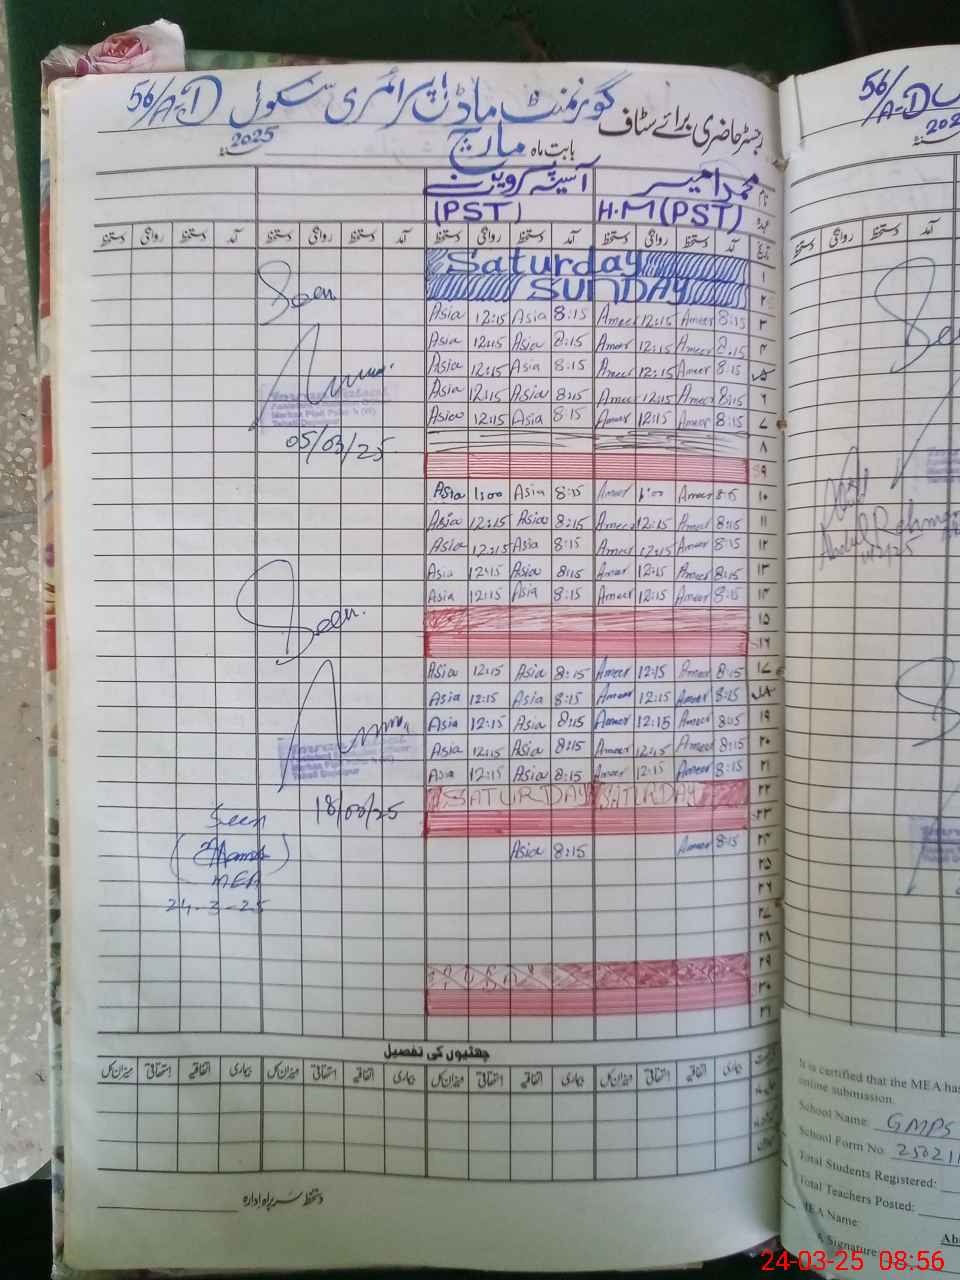 گورنمنٹ ماڈل پرائمری سکول 56/A-D
رجسٹر حاضری برائے سٹاف
بابت ماہ مارچ 2025
محمد امیر آسیہ پروین
H.M(PST) (PST)
تاریخ آمد دستخط روانگی دستخط آمد دستخط روانگی دستخط آمد دستخط روانگی دستخط آمد دستخط روانگی دستخط
۱ Saturday
۲ SUNDAY
Asia 12:15 Asia 8:15 Ameer 12:15 Ameer 8:15 ۳
Asia 12:15 Asia 8:15 Ameer 12:15 Ameer 8:15 ۴
Asia 12:15 Asia 8:15 Ameer 12:15 Ameer 8:15 ۵
Asia 12:15 Asia 8:15 Ameer 12:15 Ameer 8:15 ۶
Asia 12:15 Asia 8:15 Ameer 12:15 Ameer 8:15 ۷
۸
۹
Asia 1:00 Asia 8:15 Ameer 1:00 Ameer 8:15 ۱۰
Asia 12:15 Asia 8:15 Ameer 12:15 Ameer 8:15 ۱۱
Asia 12:15 Asia 8:15 Ameer 12:15 Ameer 8:15 ۱۲
Asia 12:15 Asia 8:15 Ameer 12:15 Ameer 8:15 ۱۳
Asia 12:15 Asia 8:15 Ameer 12:15 Ameer 8:15 ۱۴
۱۵
۱۶
Asia 12:15 Asia 8:15 Ameer 12:15 Ameer 8:15 ۱۷
Asia 12:15 Asia 8:15 Ameer 12:15 Ameer 8:15 ۱۸
Asia 12:15 Asia 8:15 Ameer 12:15 Ameer 8:15 ۱۹
Asia 12:15 Asia 8:15 Ameer 12:15 Ameer 8:15 ۲۰
Asia 12:15 Asia 8:15 Ameer 12:15 Ameer 8:15 ۲۱
SATURDAY SATURDAY ۲۲
۲۳
Asia 8:15 Ameer 8:15 ۲۴
۲۵
۲۶
۲۷
۲۸
۲۹
۳۰
۳۱
Seen
05/03/25
Seen
18/03/25
Seen
MEA
24-3-25
چھٹیوں کی تفصیل
بیماری اتفاقیہ استحقاقی میزان کل بیماری اتفاقیہ استحقاقی میزان کل بیماری اتفاقیہ استحقاقی میزان کل بیماری اتفاقیہ استحقاقی میزان کل
دستخط سربراہ ادارہ
56/A-D
202
آمد دستخط روانگی دستخط
Abdul Rehman
It is certified that the MEA has
online submission.
School Name: GMPS
School Form No: 25021
Total Students Registered:
Total Teachers Posted:
MEA Name:
Signature:
24-03-25 08:56